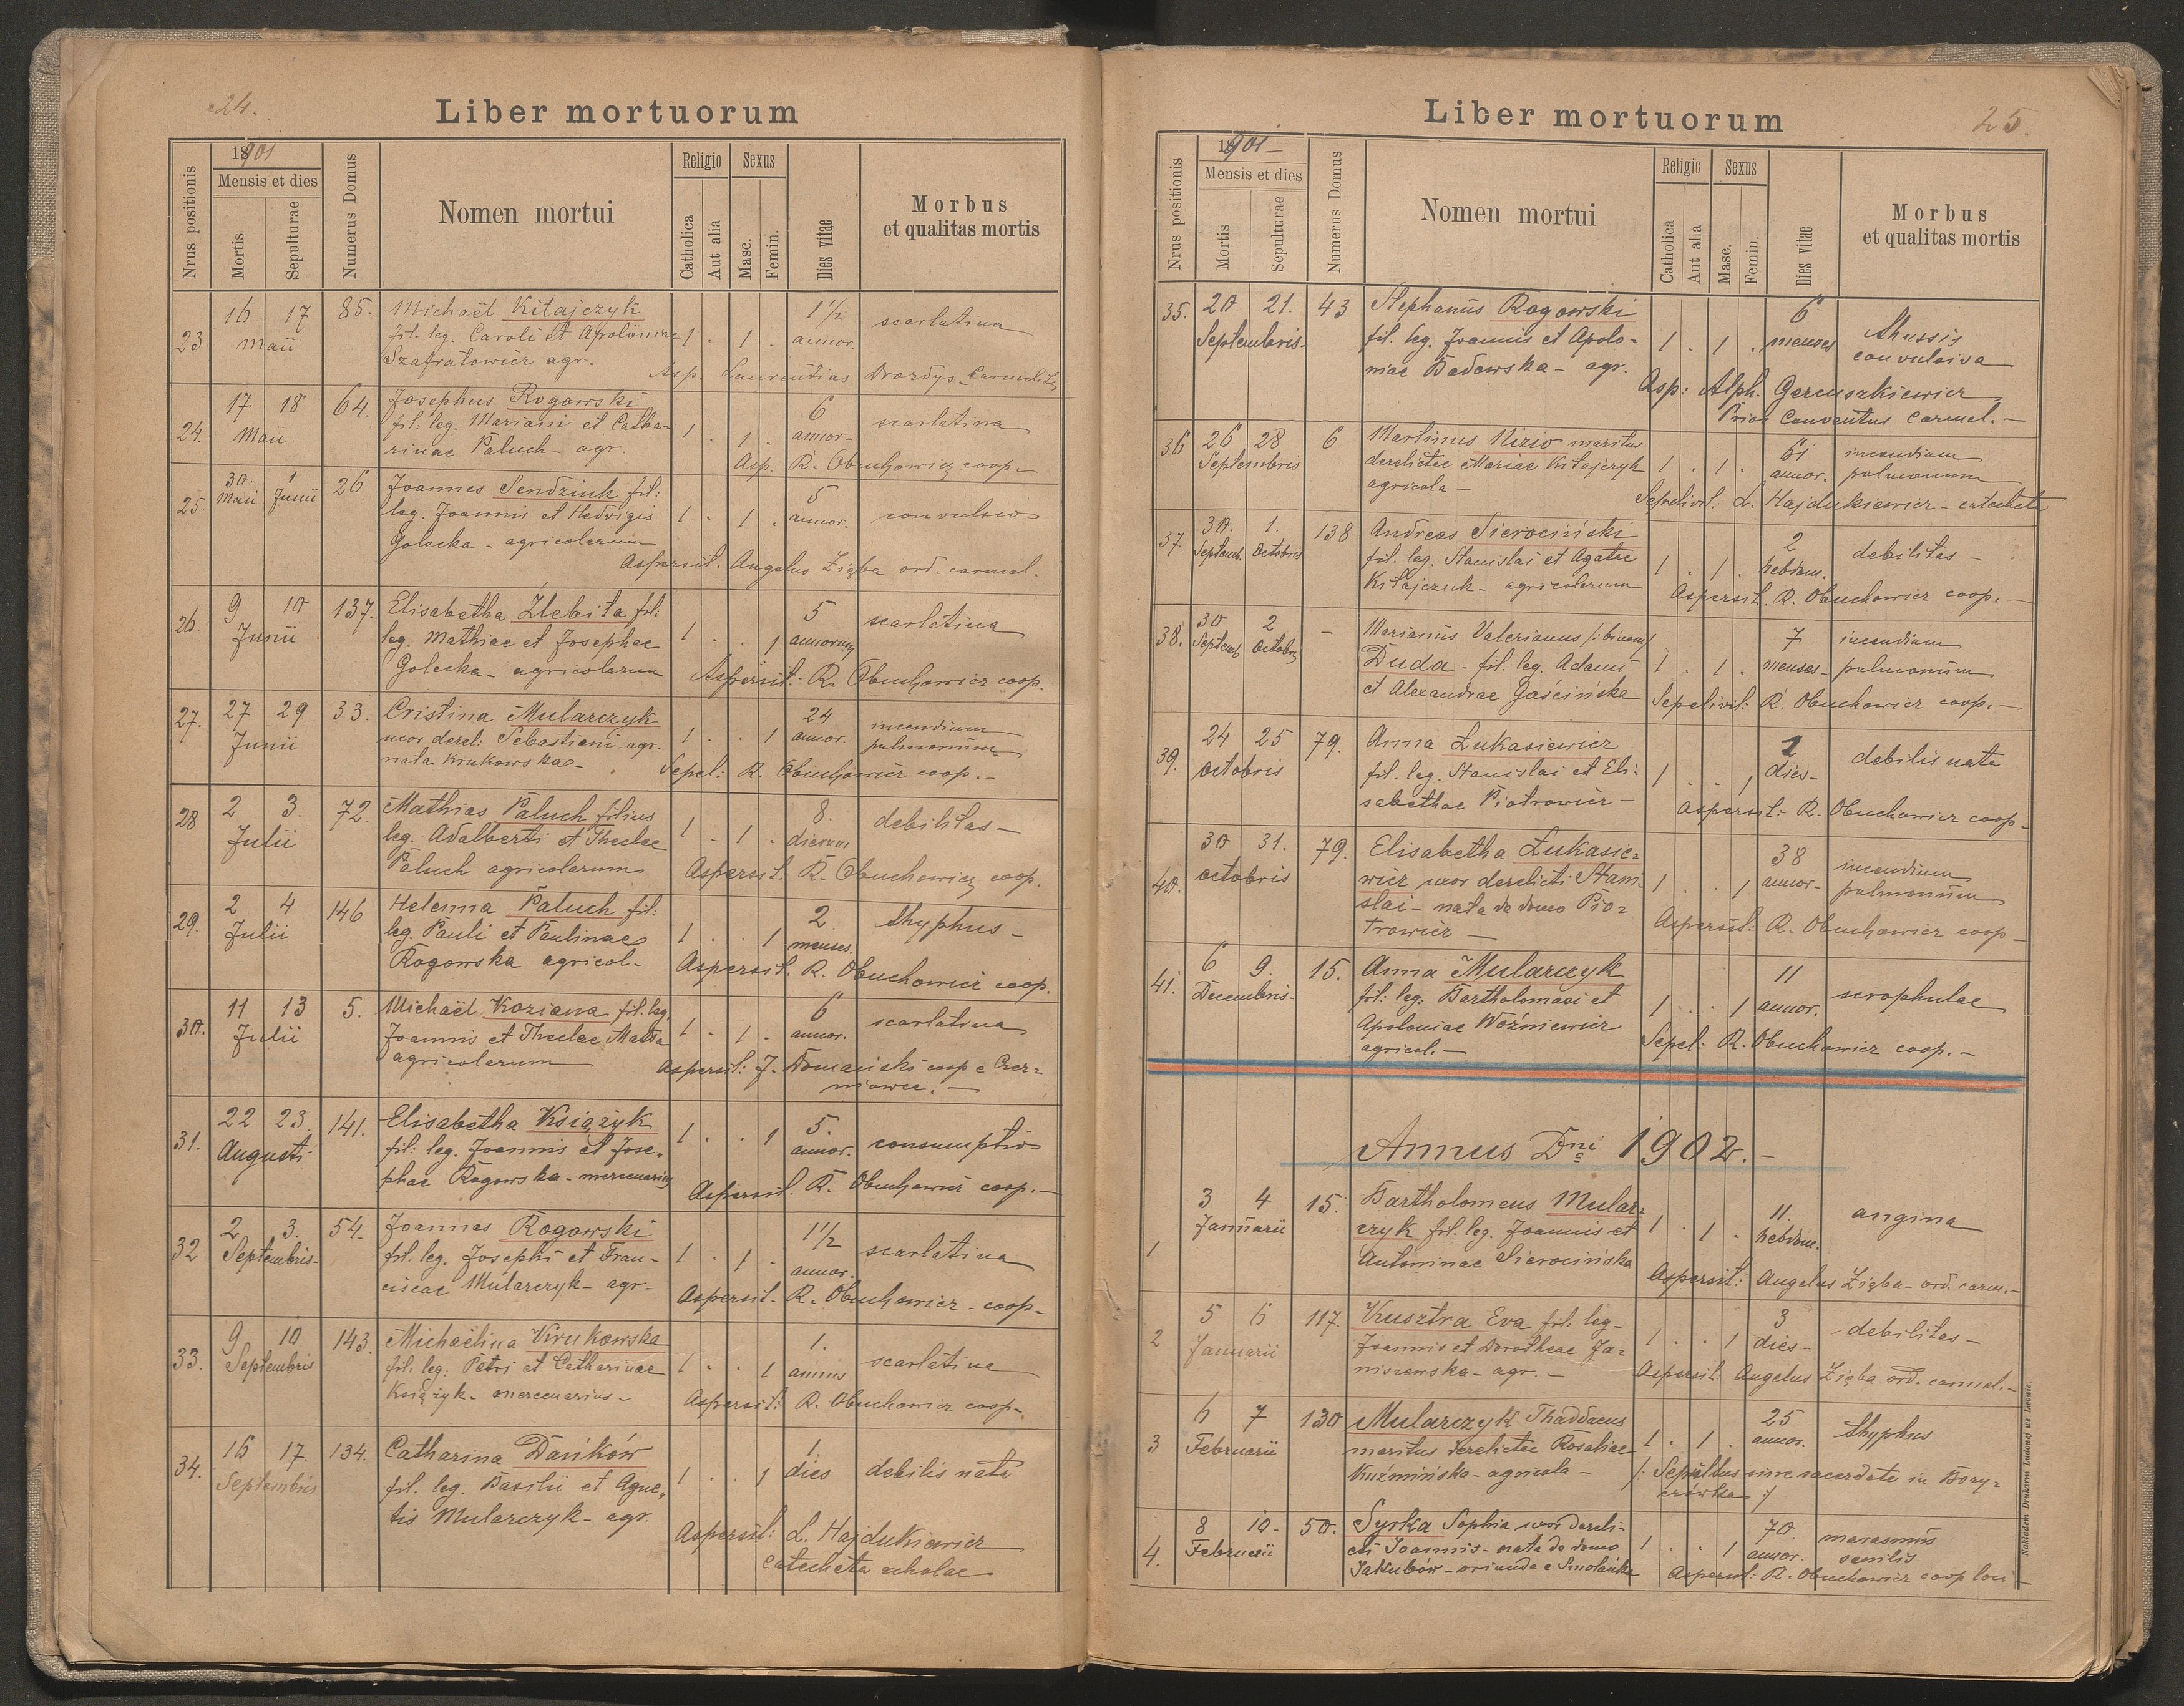 24.
Liber mortuorum
Nrus positionis
18901
Mensis et dies
Mortis
Sepulturae
Numerus Domus
Nomen mortui
Religio
Catholica
Aut alia
Sexus
Masc.
Femin.
Dies vitae
Morbus
et qualitas mortis
23 16 17 Maii 85. Michaël Kitajczyk 1 . 1 . 1½ annor. scarlatina
fil. leg. Caroli et Apoloniae
Szafratowicz agr.
Asp. Laurentius
24. 17 18 Maii 64. Josephus Rogowski 1 . 1 . 6 annor- scarlatina
fil: leg. Mariani et Catha-
rinae Paluch - agr.
Asp. R. Obuchowicz coop.
25. 30. Maii 1 Junii 26 Joannes Sendziuk fil: 1 . 1 . 5 annor. convulsio
leg. Joannis et Hedvigis
Golecka - agricolarum
Aspersit. Angelus Zięba ord. carmel.
26. 9 10 Junii 137. Elisabetha Źlebita fil: 1 . . 1 5 annorum scarlatina
leg. Mathiae et Josephae
Golecka - agricolarum
Aspersit: R. Obuchowicz coop.
27. 27 29 Junii 33. Cristina Mularczyk 1 . . 1 24 annor. incendium pulmonum
uxor derel: Sebastiani - agr.
nata Krukowska -
Sepel: R. Obuchowicz coop. -
28 2 3. Julii 72. Mathias Paluch filius 1 . 1 . 8. dierum debilitas -
leg. Adalberti et Theclae
Paluch agricolarum
Aspersit: R. Obuchowicz coop.
29. 2 4 Julii 146 Helenna Paluch fil: 1 . . 1 2. menses. thyphus -
leg. Pauli et Paulinae
Rogowska agricol-
Aspersit. R. Obuchowicz coop.
30. 11 13 Julii 5. Michaël Koziana fil. leg. 1 . 1 . 6 annor. scarlatina
Joannis et Theclae
agricolarum
Aspersit: J. coop e Czer=
niowce. -
31. 22 23. Augusti 141. Elisabetha Książyk 1 . . 1 5. annor. consumptio
fil: leg. Joannis et Jose,
phae Rogowska - mercenarius
Aspersit. R. Obuchowicz coop. -
32 2 3. Septembris- 54. Joannes Rogowski 1 . 1 . 1½ annor. scarlatina
fil. leg. Josephi et Fran-
ciscae Mularczyk - agr -
Aspersit - R. Obuchowicz - coop -
33. 9 10 Septembris 143. Michaëlina Krukowska 1 . . 1 1. annus scarlatina
fil: leg. Petri et Catharinae
Książyk - mercenarius -
Aspersit: R. Obuchowicz coop -
34. 16 17. Septembris 134. Catharina Dańków 1 . . 1 1. dies debilis nata
fil. leg. Basilii et Agne,
tis Mularczyk - agr.
Aspersit: L. Hajdukiewicz
catecheta scholae
25.
Liber mortuorum
Nrus positionis
18901 -
Mensis et dies
Mortis
Sepulturae
Numerus Domus
Nomen mortui
Religio
Catholica
Aut alia
Sexus
Masc.
Femin.
Dies vitae
Morbus
et qualitas mortis
35. 20 21. Septembris- 43 Stephanus Rogowski 1 . 1 . 6 menses thussis convulsiva
fil. leg. Joannis et Apolo-
niae Badowska - agr.
Asp: Alph.
Prior Conventus Carmel. -
36 26 28 Septembris 6 Martinus Nizio maritus 1 . 1 . 61 annor. incendium pulmonum
derelictae Mariae Kitajczyk
agricola -
Sepelivit: L. Hajdukiewicz - catecheta
37. 30. Septemb. 1. Octobris 138 Andreas Sierociński 1 . 1 . 2 hebdom. debilitas -
fil. leg. Stanislai et Agatae
Kitajczuk - agricolarum
Aspersit. R. Obuchowicz coop. -
38. 30 Septemb 2 Octobris - Marianus Valerianus /:binom:/ 1 . 1 . 7 menses - incendium pulmonum
Duda - fil. leg. Adami
et Alexandrae Gaścińska
Sepelivit: R. Obuchowicz coop. -
39. 24 25 Octobris 79. Anna Łukasiewicz 1 . . 1 2 dies - debilis nata
fil. leg. Stanislai et Eli:
sabethae Piotrowicz -
Aspersit: R. Obuchowicz coop -
40. 30 31. Octobris 79. Elisabetha Łukasie= 1 . . 1 38 annor- incendium pulmonum
wicz uxor derelicti Stani-
slai - nata de domo Pio=
trowicz -
Aspersit: R. Obuchowicz coop -
41. 6 9. Decembris- 15. Anna Mularczyk 1 . . 1 11 annor. scrophulae
fil: leg. Bartholomaei et
Apoloniae Woźniewicz
agricol. -
Sepel: R. Obuchowicz coop. -
Annus Dni 1902. -
1 3 4 Januarii 15. Bartholomeus Mular= 1 . 1 . 11. hebdom. angina
czyk fil. leg. Joannis et
Antoninae Sierocińska
Aspersit: Angelus Zięba - ord. carm. -
2 5 6 Januarii 117. Kusztra Eva fil. leg - 1 . . 1 3 dies - debilitas -
Joannis et Dorotheae Ja=
niszewska - agr. -
Aspersit: Angelus Zięba ord. carmel. -
3 6 7 Februarii 130 Mularczyk Thaddaeus 1 . 1 . 25 annor. thyphus
maritus derelictae Rosaliae
Kuźmińska - agricola -
/: Sepultus sine sacerdote in Bory=
czówka :/
4. 8 10- Februarii 50. Syrka Sophia uxor dereli- 1 . . 1 70. annor. marasmus senilis
cti Joannis - nata de domo
Jakubów - oriunda e Smolanka
Aspersit: R. Obuchowicz coop loci -
Nakładem Drukarni Ludowej we Lwowie.